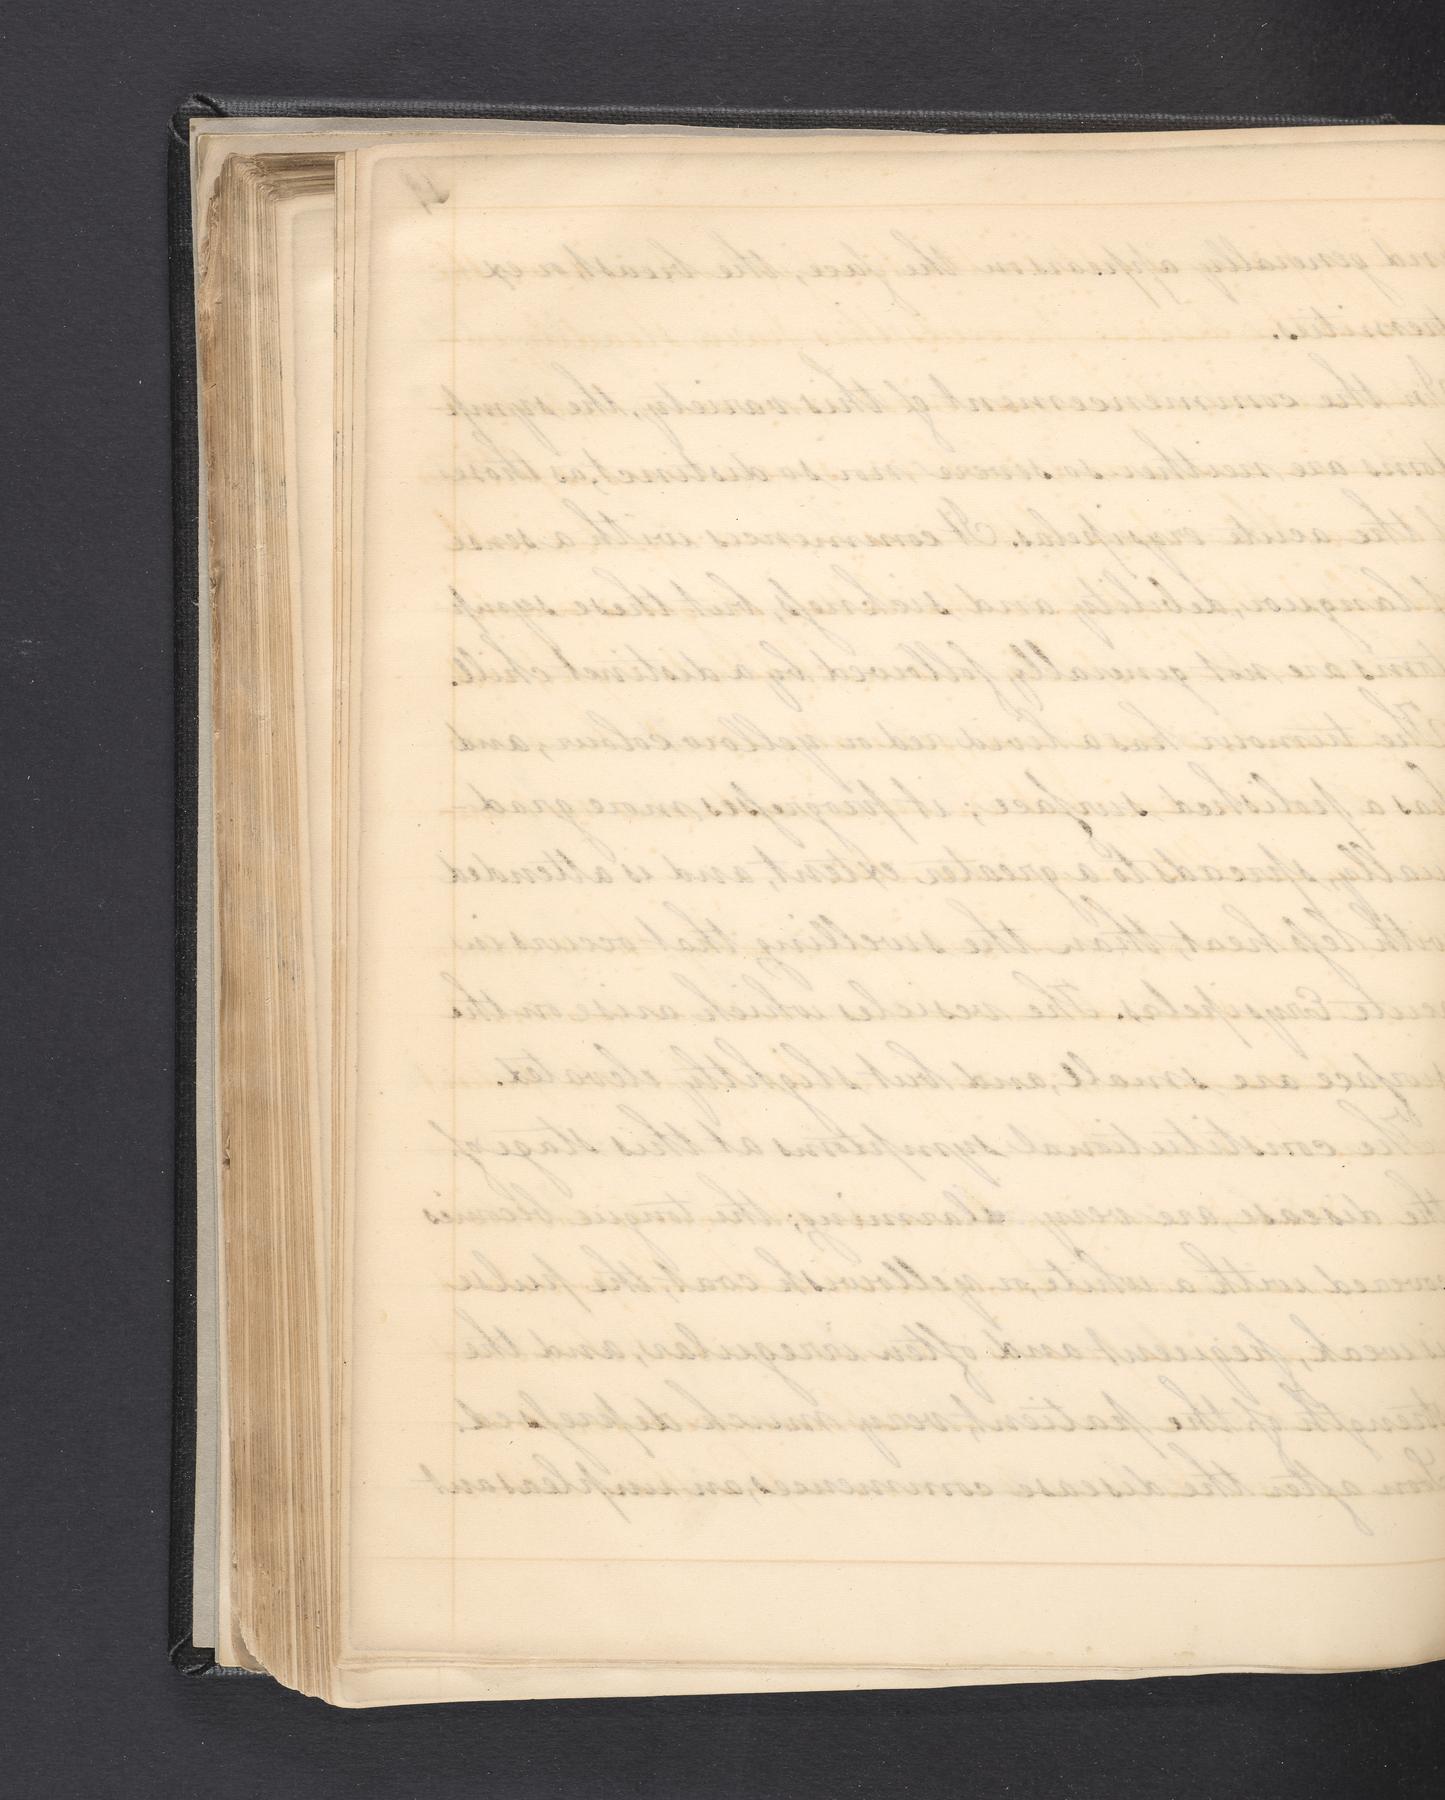 and generally appears on the face, the breast or ex-
tremities.
In the commencement of this variety, the symp-
toms are neither so severe, nor so distinct, as those
of the acute erysipelas. It commences with a sense
of languor, debility and sickness, but these symp-
toms are not generally followed by a distinct chill.
The tumour has a livid red or yellow colour, and
has a polished surface; it progresses more grad-
ually, spreads to a greater extent, and is attended
with less heat, than the swelling that occurs in
acute Erysipelas. The vesicles which arise on the
surface are small, and but slightly elevated.
The constitutional symptoms at this stage of
the disease, are very alarming; the tongue becomes
covered with a white, or yellowish coat, the pulse
is weak, frequent and often irregular, and the
strength of the patient, very much depressed.
Soon after the disease commences, an unpleasant